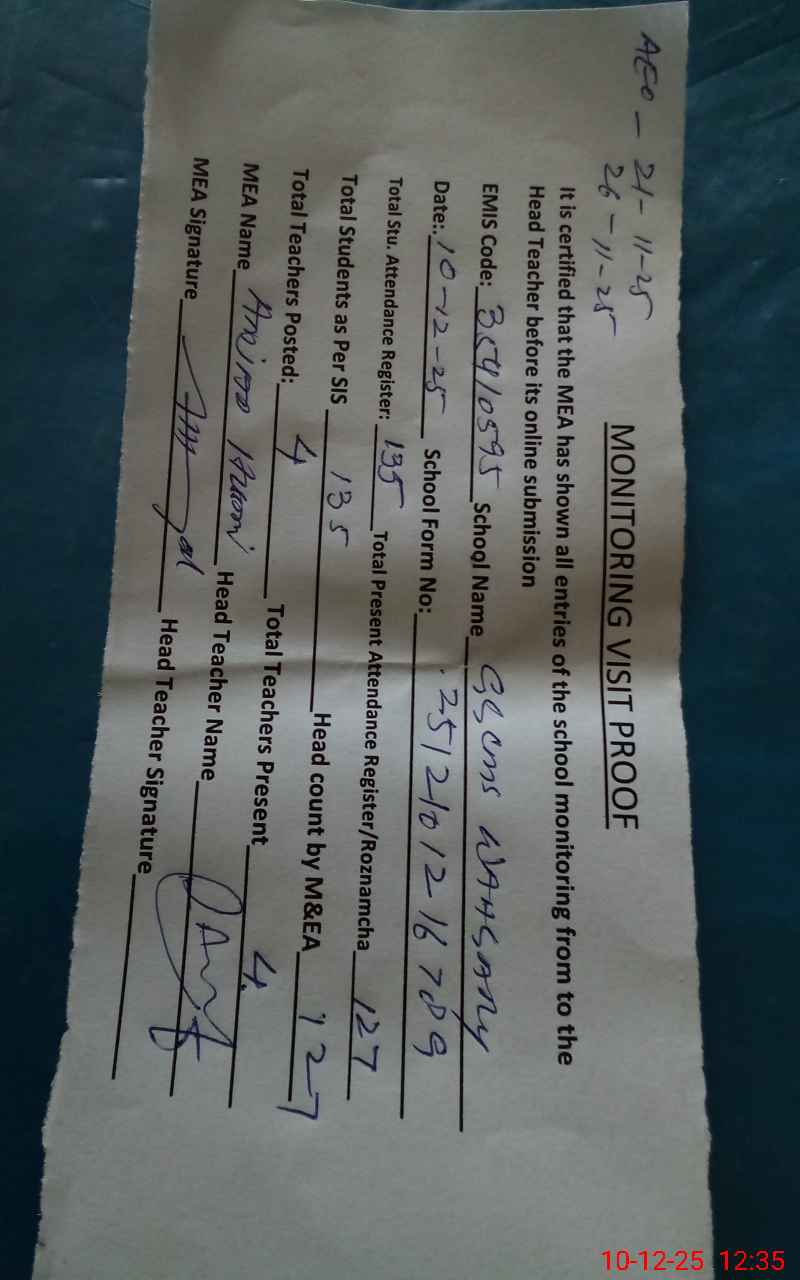 AEO - 21-11-25
26-11-25
MONITORING VISIT PROOF
It is certified that the MEA has shown all entries of the school monitoring from to the
Head Teacher before its online submission
EMIS Code: 35410595 School Name GGCMS WAHGARY
Date:. 10-12-25 School Form No: .2512101216789
Total Stu. Attendance Register: 135 Total Present Attendance Register/Roznamcha 127
Total Students as Per SIS 135 Head count by M&EA 127
Total Teachers Posted: 4 Total Teachers Present 4.
MEA Name Head Teacher Name
MEA Signature Head Teacher Signature
10-12-25 12:35